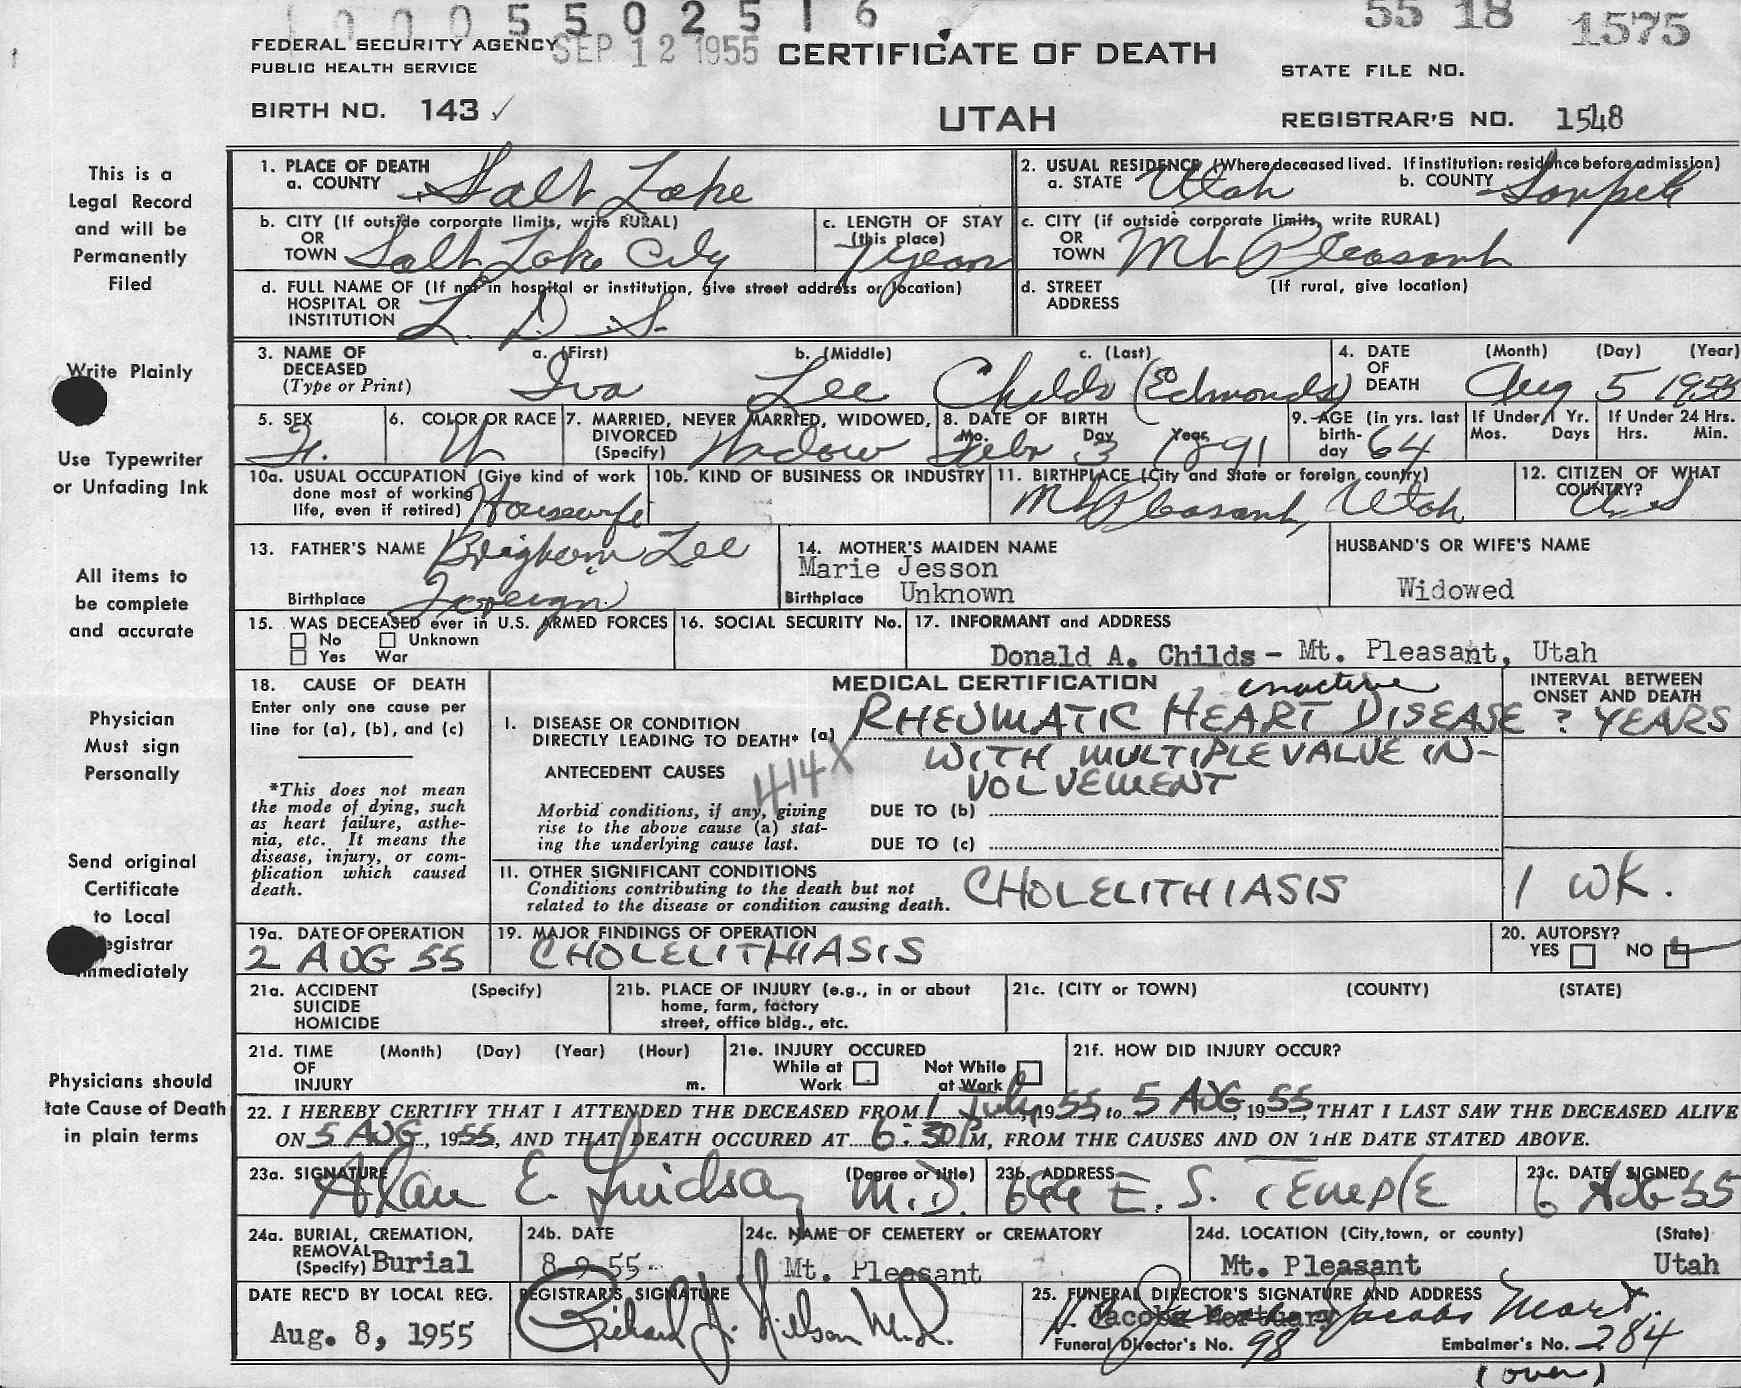 0 0 0 5 5 0 2 5 1 6
55 18 1575
FEDERAL SECURITY AGENCY
SEP 12 1955
CERTIFICATE OF DEATH
PUBLIC HEALTH SERVICE
STATE FILE NO.
BIRTH NO. 143 ✓
UTAH
REGISTRAR'S NO. 1548
This is a
Legal Record
and will be
Permanently
Filed
Write Plainly
Use Typewriter
or Unfading Ink
All items to
be complete
and accurate
Physician
Must sign
Personally
Send original
Certificate
to Local
egistrar
mmediately
Physicians should
tate Cause of Death
in plain terms
1. PLACE OF DEATH
a. COUNTY Salt Lake
2. USUAL RESIDENCE (Where deceased lived. If institution: residence before admission)
a. STATE Utah b. COUNTY Sanpete
b. CITY (If outside corporate limits, write RURAL)
OR
TOWN Salt Lake City
c. LENGTH OF STAY
(this place)
1 year
c. CITY (if outside corporate limits, write RURAL)
OR
TOWN Mt Pleasant
d. FULL NAME OF (If not in hospital or institution, give street address or location)
HOSPITAL OR
INSTITUTION L. D. S.
d. STREET (If rural, give location)
ADDRESS
3. NAME OF DECEASED (Type or Print)
a. (First) b. (Middle) c. (Last)
Iva Lee Childs (Edmonds)
4. DATE OF DEATH (Month) (Day) (Year)
Aug 5 1955
5. SEX
F.
6. COLOR OR RACE
W
7. MARRIED, NEVER MARRIED, WIDOWED,
DIVORCED
(Specify) Widow
8. DATE OF BIRTH
Mo. Day Year
Febr 3 1891
9. AGE (in yrs. last
birth-
day 64
If Under 1 Yr.
Mos. Days
If Under 24 Hrs.
Hrs. Min.
10a. USUAL OCCUPATION (Give kind of work
done most of working
life, even if retired) Housewife
10b. KIND OF BUSINESS OR INDUSTRY
11. BIRTHPLACE (City and State or foreign country)
Mt Pleasant, Utah
12. CITIZEN OF WHAT
COUNTRY?
U S
13. FATHER'S NAME Brigham Lee
Birthplace Foreign
14. MOTHER'S MAIDEN NAME
Marie Jesson
Birthplace Unknown
HUSBAND'S OR WIFE'S NAME
Widowed
15. WAS DECEASED ever in U.S. ARMED FORCES
No Unknown
Yes War
16. SOCIAL SECURITY No.
17. INFORMANT and ADDRESS
Donald A. Childs - Mt. Pleasant, Utah
18. CAUSE OF DEATH
Enter only one cause per
line for (a), (b), and (c)
*This does not mean
the mode of dying, such
as heart failure, asthe-
nia, etc. It means the
disease, injury, or com-
plication which caused
death.
MEDICAL CERTIFICATION
INTERVAL BETWEEN
ONSET AND DEATH
inactive
I. DISEASE OR CONDITION
DIRECTLY LEADING TO DEATH* (a) RHEUMATIC HEART DISEASE ? YEARS
WITH MULTIPLE VALUE IN-
VOLVEMENT
ANTECEDENT CAUSES
414X
Morbid conditions, if any, giving
rise to the above cause (a) stat-
ing the underlying cause last.
DUE TO (b)
DUE TO (c)
II. OTHER SIGNIFICANT CONDITIONS
Conditions contributing to the death but not
related to the disease or condition causing death.
CHOLELITHIASIS 1 WK.
19a. DATE OF OPERATION
2 AUG 55
19. MAJOR FINDINGS OF OPERATION
CHOLELITHIASIS
20. AUTOPSY?
YES NO
21a. ACCIDENT (Specify)
SUICIDE
HOMICIDE
21b. PLACE OF INJURY (e.g., in or about
home, farm, factory
street, office bldg., etc.
21c. (CITY or TOWN) (COUNTY) (STATE)
21d. TIME (Month) (Day) (Year) (Hour)
OF
INJURY m.
21e. INJURY OCCURED
While at Work Not While at Work
21f. HOW DID INJURY OCCUR?
22. I HEREBY CERTIFY THAT I ATTENDED THE DECEASED FROM 1 July, 1955, to 5 AUG, 1955, THAT I LAST SAW THE DECEASED ALIVE
ON 5 AUG, 1955, AND THAT DEATH OCCURED AT 6:30 PM, FROM THE CAUSES AND ON THE DATE STATED ABOVE.
23a. SIGNATURE (Degree or title)
Alan E. Lindsay M.D.
23b. ADDRESS
644 E. S. TEMPLE
23c. DATE SIGNED
6 AUG 55
24a. BURIAL, CREMATION,
REMOVAL
(Specify) Burial
24b. DATE
8-9-55
24c. NAME OF CEMETERY or CREMATORY
Mt. Pleasant
24d. LOCATION (City, town, or county) (State)
Mt. Pleasant Utah
DATE REC'D BY LOCAL REG.
Aug. 8, 1955
REGISTRAR'S SIGNATURE
Richard J. Nilson M.D.
25. FUNERAL DIRECTOR'S SIGNATURE AND ADDRESS
Jacobs Mortuary
Jacobs Mort.
Funeral Director's No. 98 Embalmer's No. 284
(over)